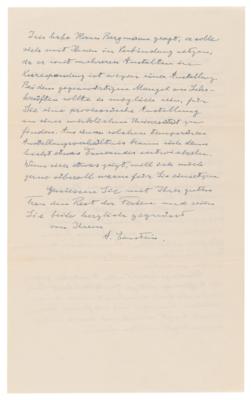 Ich habe Herrn Bergmann gesagt, er solle
sich mit Ihnen in Verbindung setzen,
da er mit mehreren Anstalten in
Korrespondenz ist wegen einer Anstellung.
Bei dem gegenwärtigen Mangel an Lehr-
kräften sollte es möglich sein, für
Sie eine provisorische Anstellung
an einer Universität zu
finden. Aus einem solchen temporären
Anstellungsverhältnis kann sich dann
leicht etwas Dauerndes entwickeln.
Wenn sich etwas zeigt, will ich mich
gerne überall warm für Sie einsetzen.
Geniessen Sie mit Ihrer guten
Frau den Rest der Ferien und seien
Sie beide herzlich gegrüsst
von Ihrem
A. Einstein.